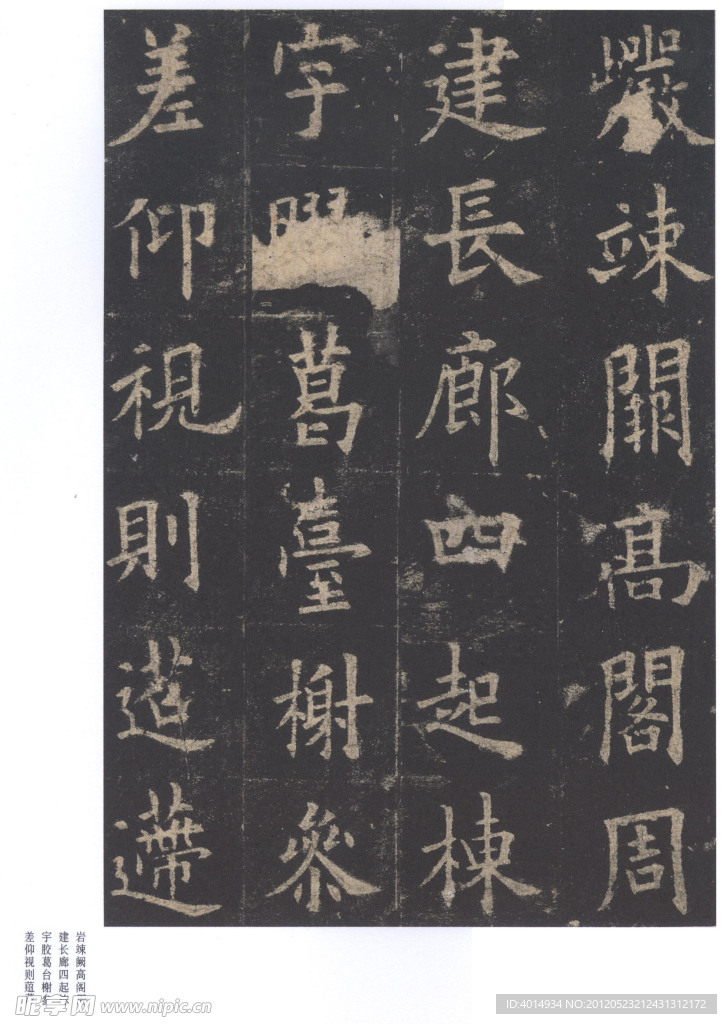 巖竦闕高閣周
建長廊四起棟
宇膠葛臺榭參
差仰視則迢遰
岩竦阙高阁
建长廊四起
宇胶葛台榭
差仰视则
昵享网 www.nipic.cn
ID:4014934 NO:20120523212431312172